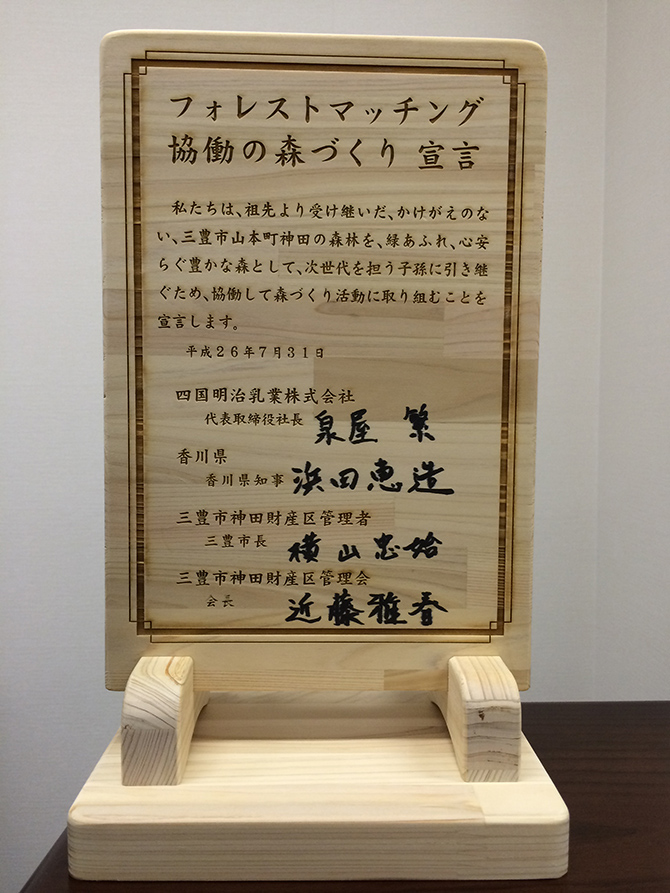 フォレストマッチング
協働の森づくり 宣言
私たちは、祖先より受け継いだ、かけがえのな
い、三豊市山本町神田の森林を、緑あふれ、心安
らぐ豊かな森として、次世代を担う子孫に引き継
ぐため、協働して森づくり活動に取り組むことを
宣言します。
平成26年7月31日
四国明治乳業株式会社
代表取締役社長 泉屋 繁
香川県
香川県知事 浜田恵造
三豊市神田財産区管理者
三豊市長 横山忠始
三豊市神田財産区管理会
会長 近藤雅春